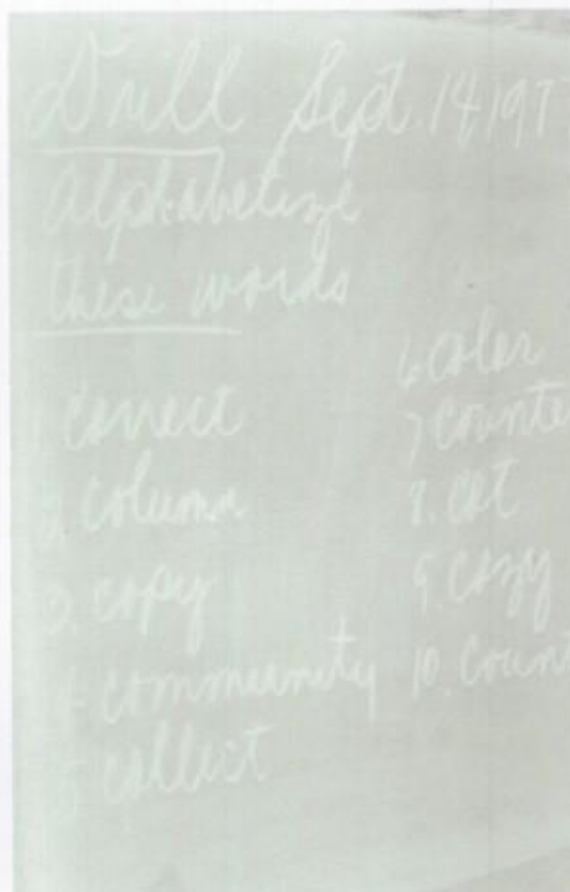 Drill Sept 14 197
Alphabetize
these words
1 correct
2. column
3. copy
4. community
5 collect
6 color
7 counte
8. cot
9. cozy
10. count